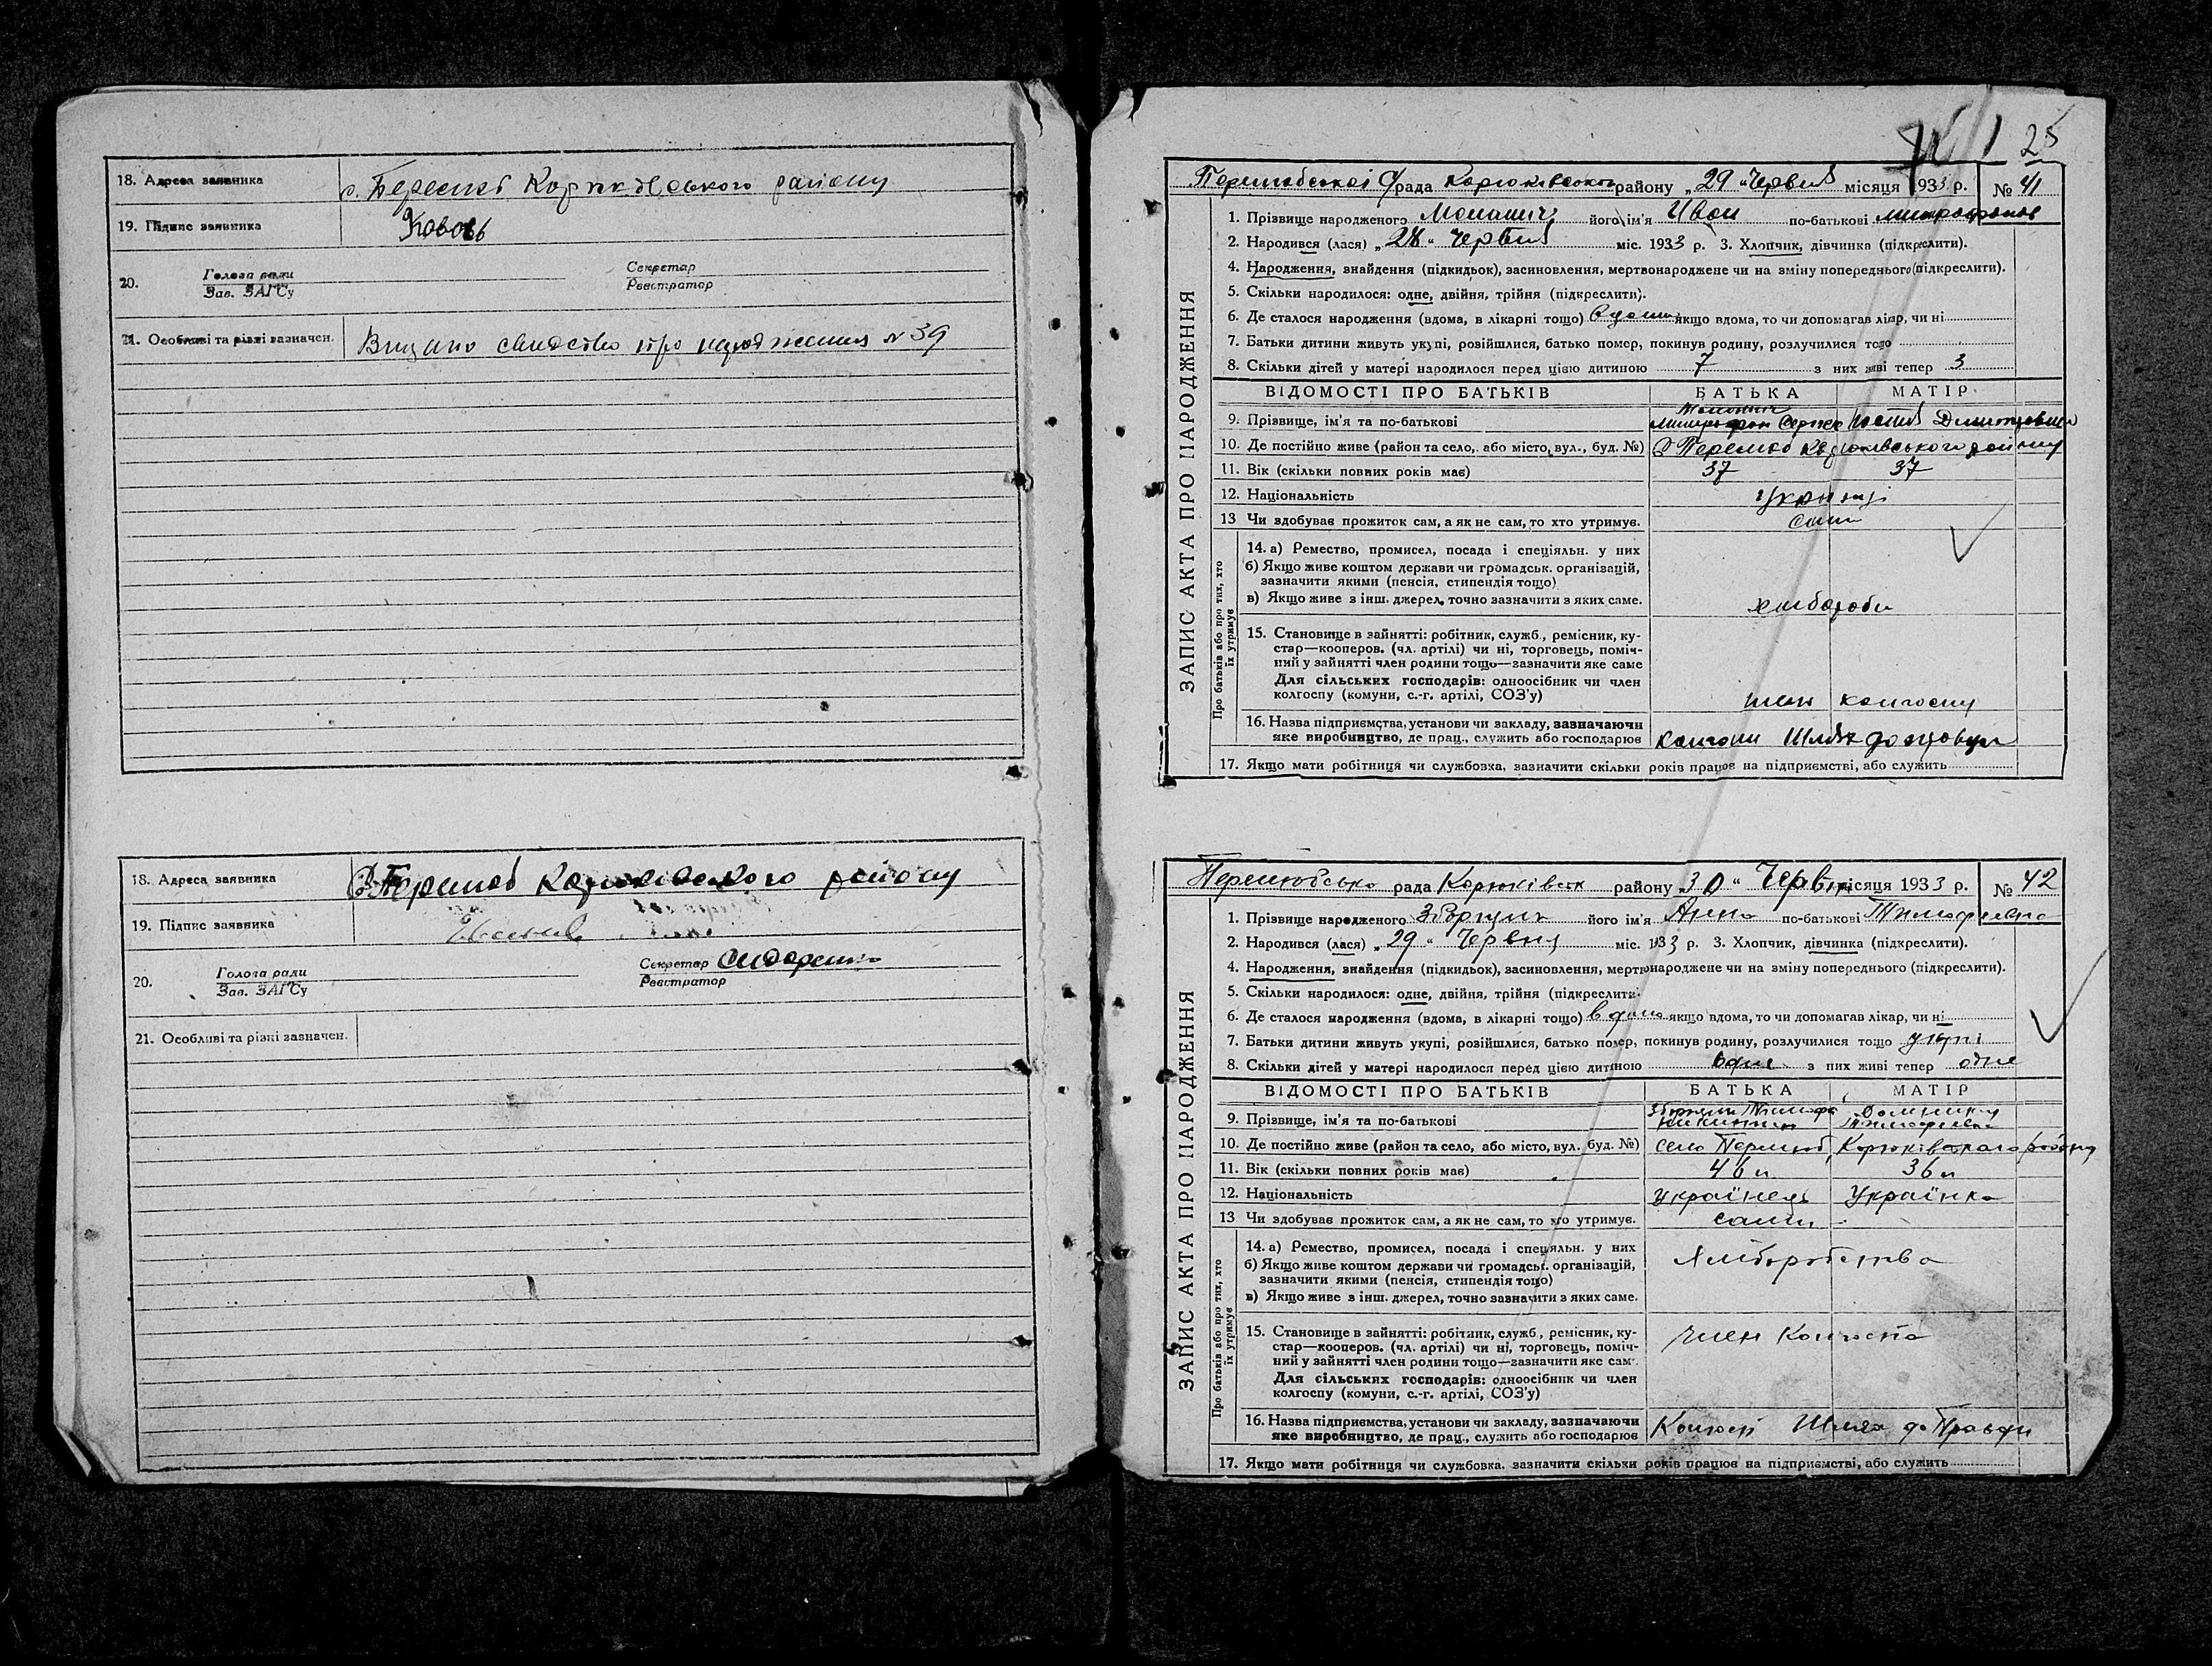 18. Адреса заявника с. Перелюб Корюківського району
19. Підпис заявника
20. Голова ради Секретар
Зав. ЗАГСу Реєстратор
21. Особливі та різні зазначен. Видано свидоство про народження № 39
18. Адреса заявника с. Перелюб Корюківского району
19. Підпис заявника
20. Голова ради Секретар Сидоренко
Зав. ЗАГСу Реєстратор
21. Особливі та різні зазначен.
25
Перелюбської С/рада Корюківського району „29" Червня місяця 1933 р. № 41
ЗАПИС АКТА ПРО НАРОДЖЕННЯ
1. Прізвище народженого його ім'я Иван по-батькові Митрофанов
2. Народився (лася) „28" Червня міс. 1933 р. 3. Хлопчик, дівчинка (підкреслити).
4. Народження, знайдення (підкидьок), засиновлення, мертвонароджене чи на зміну попереднього (підкреслити).
5. Скільки народилося: одне, двійня, трійня (підкреслити).
6. Де сталося народження (вдома, в лікарні тощо) вдома якщо вдома, то чи допомагав лікар, чи ні
7. Батьки дитини живуть укупі, розійшлися, батько помер, покинув родину, розлучилися тощо
8. Скільки дітей у матері народилося перед цією дитиною 7 з них живі тепер 3
ВІДОМОСТІ ПРО БАТЬКІВ БАТЬКА МАТІР
9. Прізвище, ім'я та по-батькові Митрофан
10. Де постійно живе (район та село, або місто, вул., буд. №) с Перелюб Корюківського району
11. Вік (скільки повних років має) 37 37
12. Національність українці
13 Чи здобуває прожиток сам, а як не сам, то хто утримує. сами
Про батьків або про тих, хто їх утримує
14. а) Ремество, промисел, посада і спеціяльн. у них
б) Якщо живе коштом держави чи громадськ. організацій,
зазначити якими (пенсія, стипендія тощо)
в) Якщо живе з інш. джерел, точно зазначити з яких саме. хлібороби
15. Становище в зайнятті: робітник, служб., ремісник, ку-
стар—кооперов. (чл. артілі) чи ні, торговець, поміч-
ний у зайнятті член родини тощо—зазначити яке саме
Для сільських господарів: одноосібник чи член
колгоспу (комуни, с.-г. артілі, СОЗ'у) член колгоспу
16. Назва підприємства, установи чи закладу, зазначаючи
яке виробництво, де прац., служить або господарює Колгосп Шлях до
17. Якщо мати робітниця чи службовка, зазначити скільки років працює на підприємстві, або служить
Перелюбсько рада Корюківськ району „30" Червня місяця 1933 р. № 42
ЗАПИС АКТА ПРО НАРОДЖЕННЯ
1. Прізвище народженого Зборщик його ім'я Анна по-батькові Тимофеевна
2. Народився (лася) „29" Червня міс. 1933 р. 3. Хлопчик, дівчинка (підкреслити).
4. Народження, знайдення (підкидьок), засиновлення, мертвонароджене чи на зміну попереднього (підкреслити).
5. Скільки народилося: одне, двійня, трійня (підкреслити).
6. Де сталося народження (вдома, в лікарні тощо) вдома якщо вдома, то чи допомагав лікар, чи ні
7. Батьки дитини живуть укупі, розійшлися, батько помер, покинув родину, розлучилися тощо укупі
8. Скільки дітей у матері народилося перед цією дитиною одне з них живі тепер одне
ВІДОМОСТІ ПРО БАТЬКІВ БАТЬКА МАТІР
9. Прізвище, ім'я та по-батькові Зборщик Тимофе Тимофеевна
10. Де постійно живе (район та село, або місто, вул. буд. №) село Перелюб, Корюківского району
11. Вік (скільки повних років має) 46 л 36 л
12. Національність Українець Українка
13 Чи здобуває прожиток сам, а як не сам, то хто утримує. сами
Про батьків або про тих, хто їх утримує
14. а) Ремество, промисел, посада і спеціяльн. у них
б) Якщо живе коштом держави чи громадськ. організацій,
зазначити якими (пенсія, стипендія тощо) Хліборобство
в) Якщо живе з інш. джерел, точно зазначити з яких саме.
15. Становище в зайнятті: робітник, служб., ремісник, ку-
стар—кооперов. (чл. артілі) чи ні, торговець, поміч-
ний у зайнятті член родини тощо—зазначити яке сам член Колгоспа
Для сільських господарів: одноосібник чи член
колгоспу (комуни, с.-г. артілі, СОЗ'у)
16. Назва підприємства, установи чи закладу, зазначаючи
яке виробництво, де прац., служить або господарює Колгосп Шлях до Правди
17. Якщо мати робітниця чи службовка, зазначити скільки років працює на підприємстві, або служить